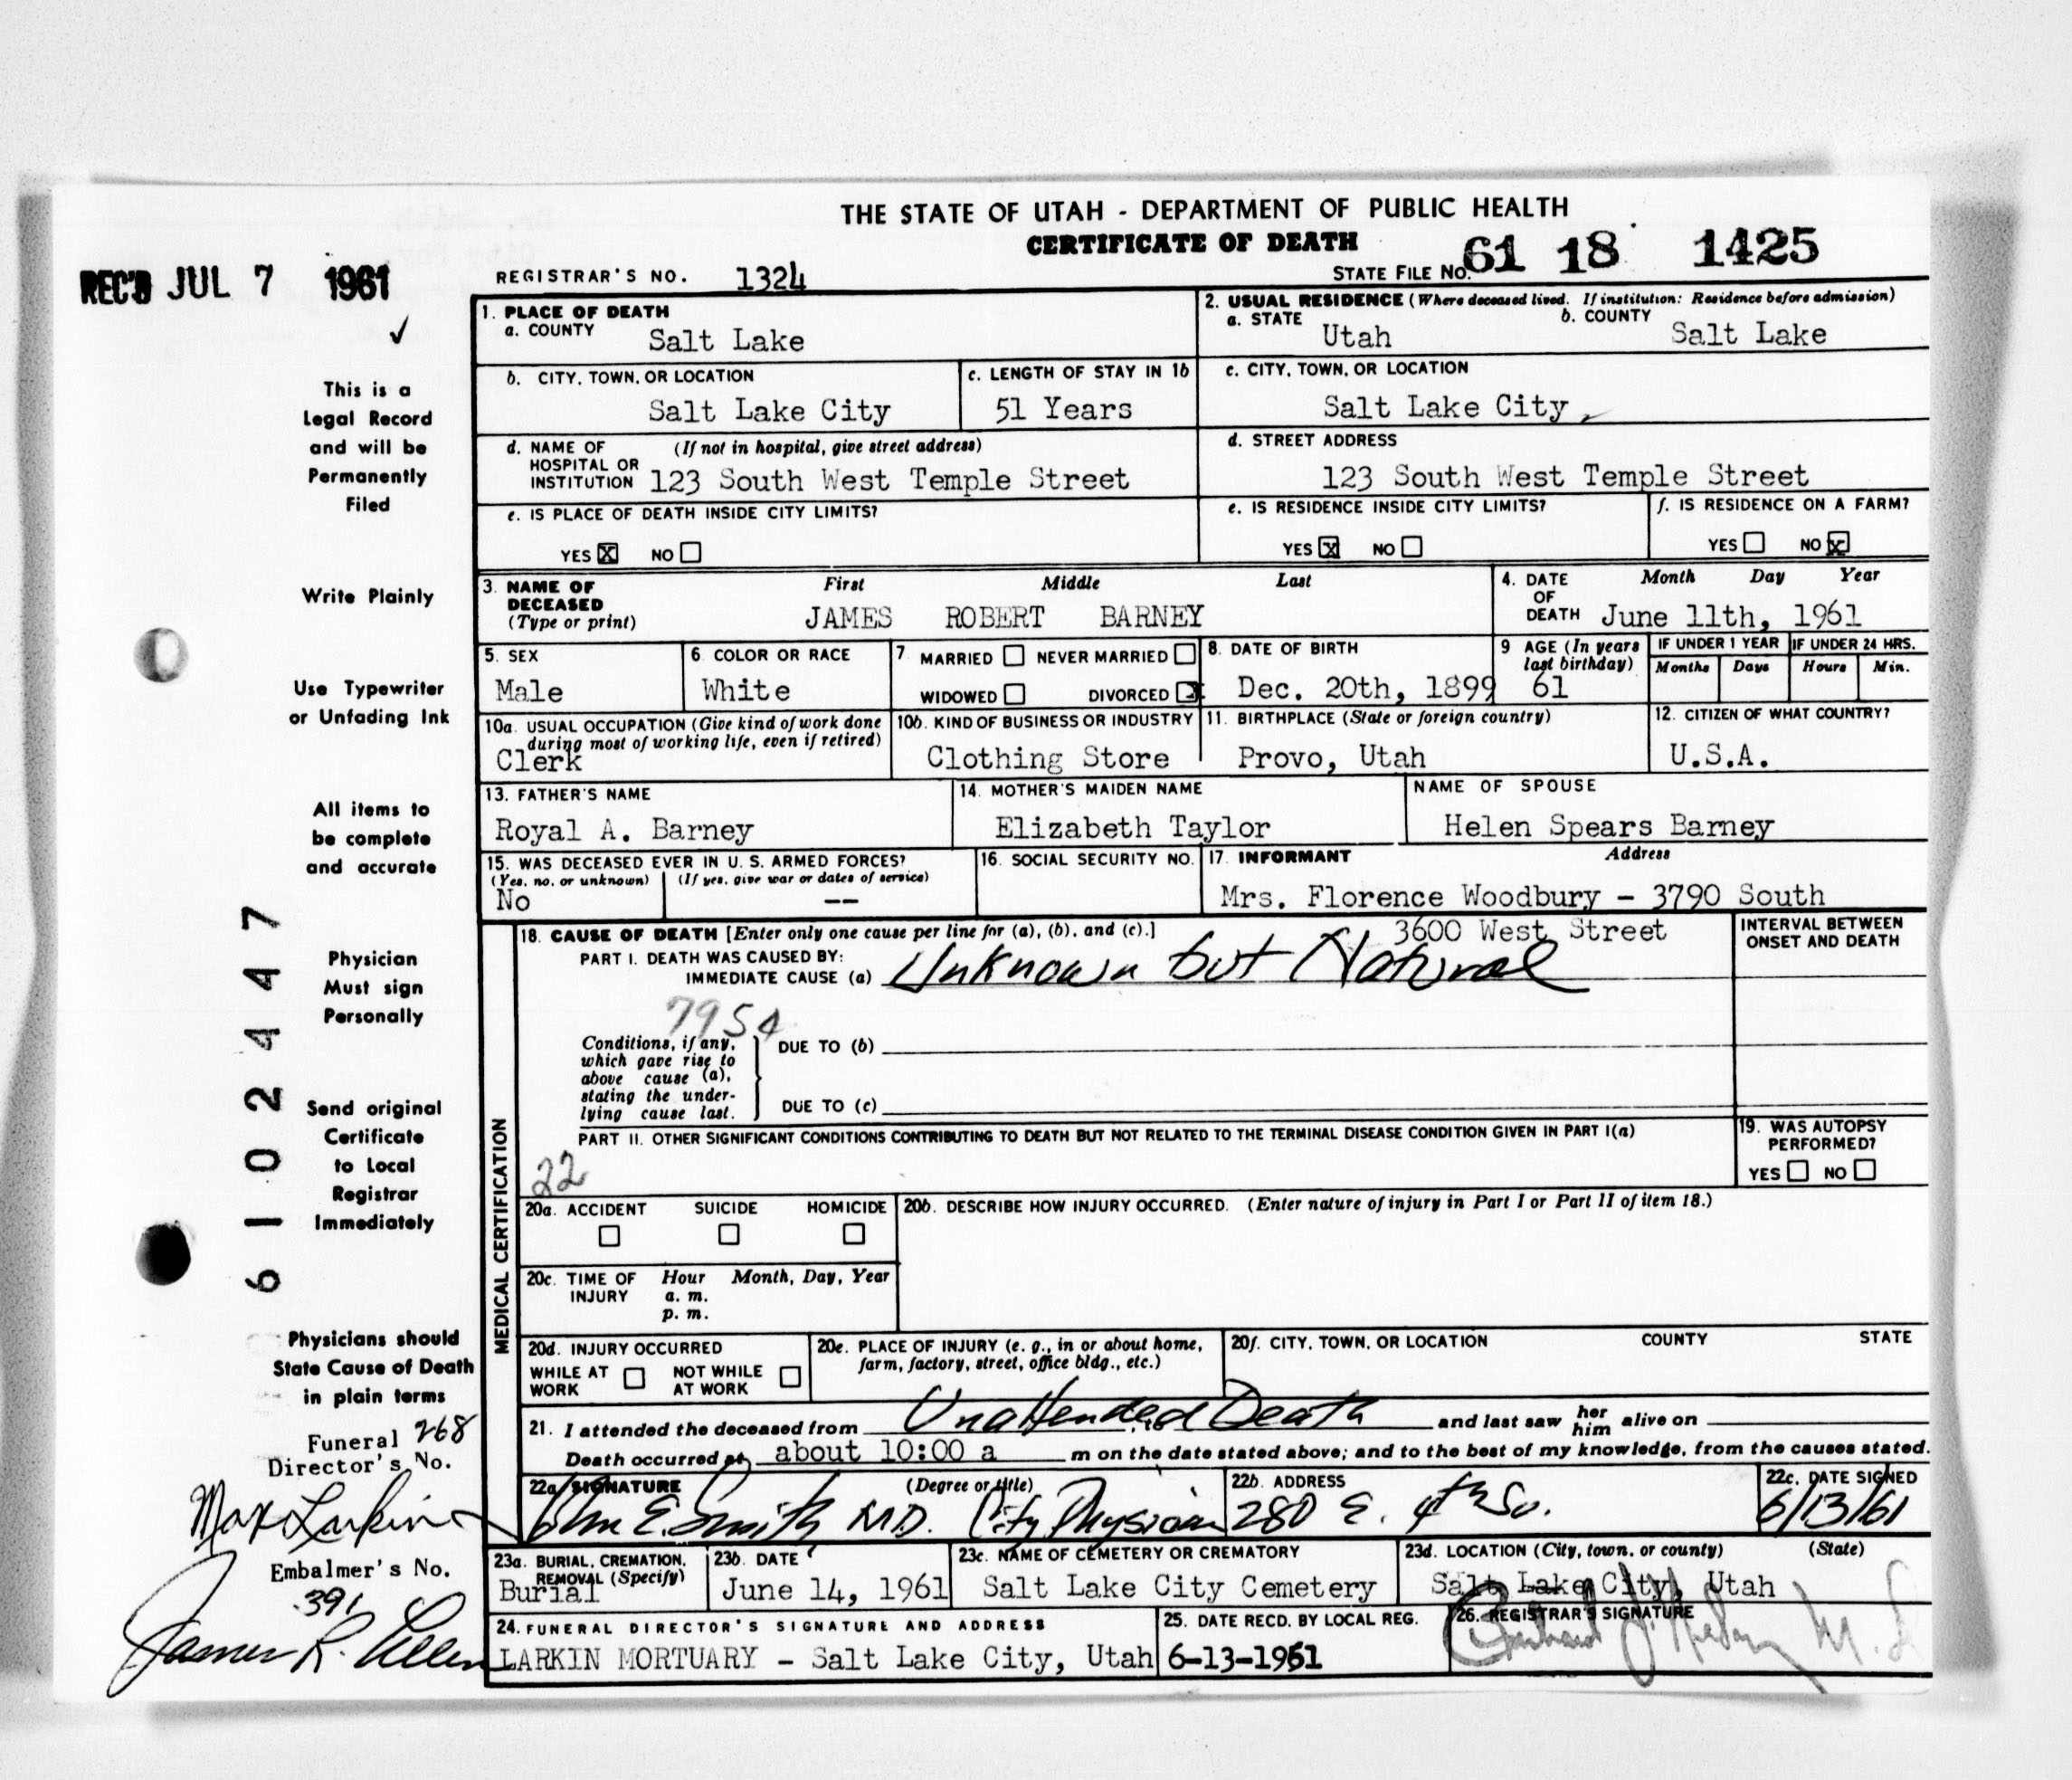 THE STATE OF UTAH - DEPARTMENT OF PUBLIC HEALTH
CERTIFICATE OF DEATH
REC'D JUL 7 1961
REGISTRAR'S NO. 1324
STATE FILE NO. 61 18 1425
1. PLACE OF DEATH
a. COUNTY Salt Lake
2. USUAL RESIDENCE (Where deceased lived. If institution: Residence before admission)
a. STATE Utah b. COUNTY Salt Lake
b. CITY, TOWN, OR LOCATION Salt Lake City
c. LENGTH OF STAY IN 1b 51 Years
c. CITY, TOWN, OR LOCATION Salt Lake City
d. NAME OF HOSPITAL OR INSTITUTION (If not in hospital, give street address)
123 South West Temple Street
d. STREET ADDRESS
123 South West Temple Street
e. IS PLACE OF DEATH INSIDE CITY LIMITS?
YES X NO
e. IS RESIDENCE INSIDE CITY LIMITS?
YES X NO
f. IS RESIDENCE ON A FARM?
YES NO X
3. NAME OF DECEASED (Type or print)
First Middle Last
JAMES ROBERT BARNEY
4. DATE OF DEATH Month Day Year
June 11th, 1961
5. SEX Male
6. COLOR OR RACE White
7. MARRIED NEVER MARRIED
WIDOWED DIVORCED X
8. DATE OF BIRTH Dec. 20th, 1899
9 AGE (In years last birthday) 61
IF UNDER 1 YEAR Months Days
IF UNDER 24 HRS. Hours Min.
10a. USUAL OCCUPATION (Give kind of work done during most of working life, even if retired)
Clerk
10b. KIND OF BUSINESS OR INDUSTRY
Clothing Store
11. BIRTHPLACE (State or foreign country)
Provo, Utah
12. CITIZEN OF WHAT COUNTRY?
U.S.A.
13. FATHER'S NAME
Royal A. Barney
14. MOTHER'S MAIDEN NAME
Elizabeth Taylor
NAME OF SPOUSE
Helen Spears Barney
15. WAS DECEASED EVER IN U. S. ARMED FORCES?
(Yes, no, or unknown) (If yes, give war or dates of service)
No --
16. SOCIAL SECURITY NO.
17. INFORMANT Address
Mrs. Florence Woodbury - 3790 South
3600 West Street
18. CAUSE OF DEATH [Enter only one cause per line for (a), (b), and (c).]
PART I. DEATH WAS CAUSED BY:
IMMEDIATE CAUSE (a) Unknown but Natural
INTERVAL BETWEEN ONSET AND DEATH
795
Conditions, if any, which gave rise to above cause (a), stating the underlying cause last.
DUE TO (b)
DUE TO (c)
PART II. OTHER SIGNIFICANT CONDITIONS CONTRIBUTING TO DEATH BUT NOT RELATED TO THE TERMINAL DISEASE CONDITION GIVEN IN PART I(a)
22
19. WAS AUTOPSY PERFORMED?
YES NO
MEDICAL CERTIFICATION
20a. ACCIDENT SUICIDE HOMICIDE
20b. DESCRIBE HOW INJURY OCCURRED. (Enter nature of injury in Part I or Part II of item 18.)
20c. TIME OF INJURY Hour a. m. p. m. Month, Day, Year
20d. INJURY OCCURRED
WHILE AT WORK NOT WHILE AT WORK
20e. PLACE OF INJURY (e. g., in or about home, farm, factory, street, office bldg., etc.)
20f. CITY, TOWN, OR LOCATION COUNTY STATE
21. I attended the deceased from Unattended Death, to and last saw her him alive on
Death occurred at about 10:00 a m on the date stated above; and to the best of my knowledge, from the causes stated.
22a. SIGNATURE (Degree or title)
John E. Smith M.D. City Physician
22b. ADDRESS
280 E. 4th So.
22c. DATE SIGNED
6/13/61
23a. BURIAL, CREMATION, REMOVAL (Specify)
Burial
23b. DATE
June 14, 1961
23c. NAME OF CEMETERY OR CREMATORY
Salt Lake City Cemetery
23d. LOCATION (City, town, or county) (State)
Salt Lake City, Utah
24. FUNERAL DIRECTOR'S SIGNATURE AND ADDRESS
LARKIN MORTUARY - Salt Lake City, Utah
25. DATE RECD. BY LOCAL REG.
6-13-1961
26. REGISTRAR'S SIGNATURE
This is a
Legal Record
and will be
Permanently
Filed
Write Plainly
Use Typewriter
or Unfading Ink
All items to
be complete
and accurate
Physician
Must sign
Personally
Send original
Certificate
to Local
Registrar
Immediately
Physicians should
State Cause of Death
in plain terms
Funeral 268
Director's No.
Max Larkin
Embalmer's No.
391
James R. Allen
6102447